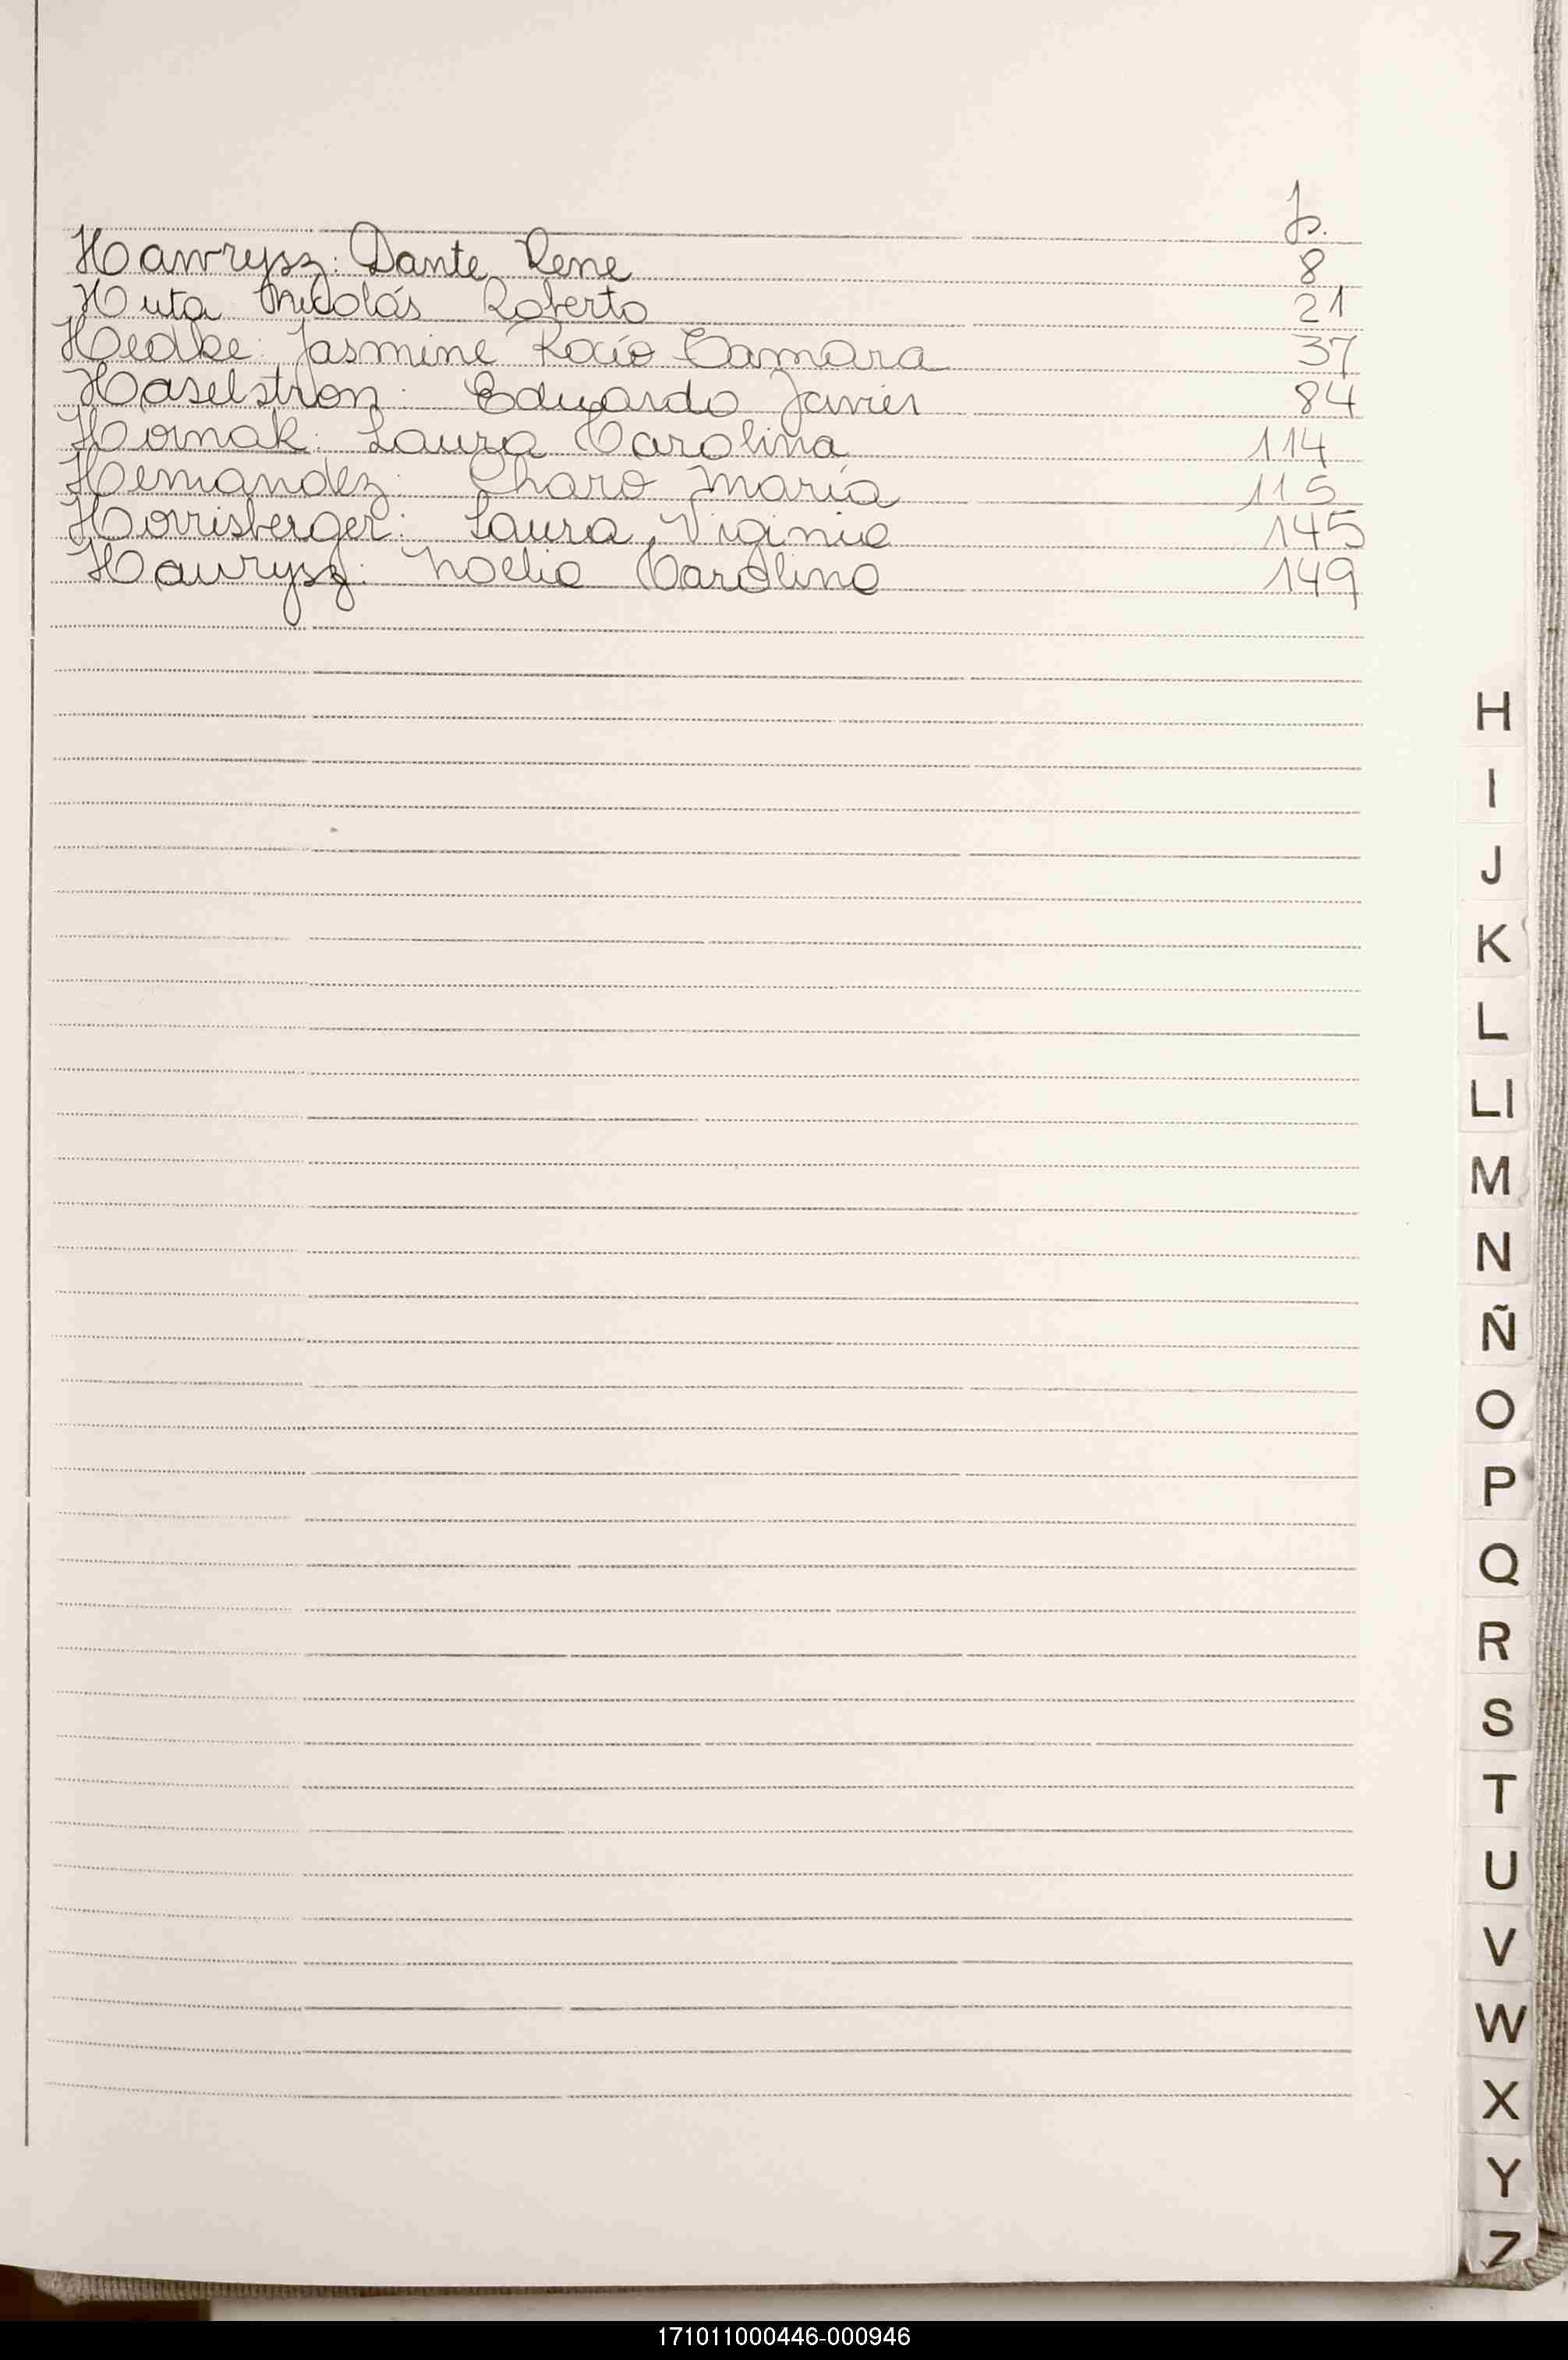 f.
Hawrysz: Dante Rene 8
Huta Nicolás Roberto 21
Hedke: Jasmine Rocío Tamara 37
Haselstron: Eduardo Javier 84
Hornak: Laura Carolina 114
Hernandez: Charo María 115
Horrisberger: Laura Viginia 145
Hawrysz: Noelia Carolina 149
H
I
J
K
L
Ll
M
N
Ñ
O
P
Q
R
S
T
U
V
W
X
Y
Z
171011000446-000946